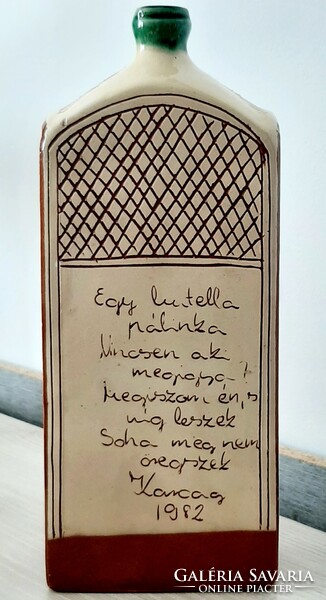 Egy butella
pálinka
Nincsen aki
megigya!
Megiszom én,s
míg leszek
Soha meg nem
öregszek
Karcag
1982
GALÉRIA SAVARIA
ONLINE PIACTÉR